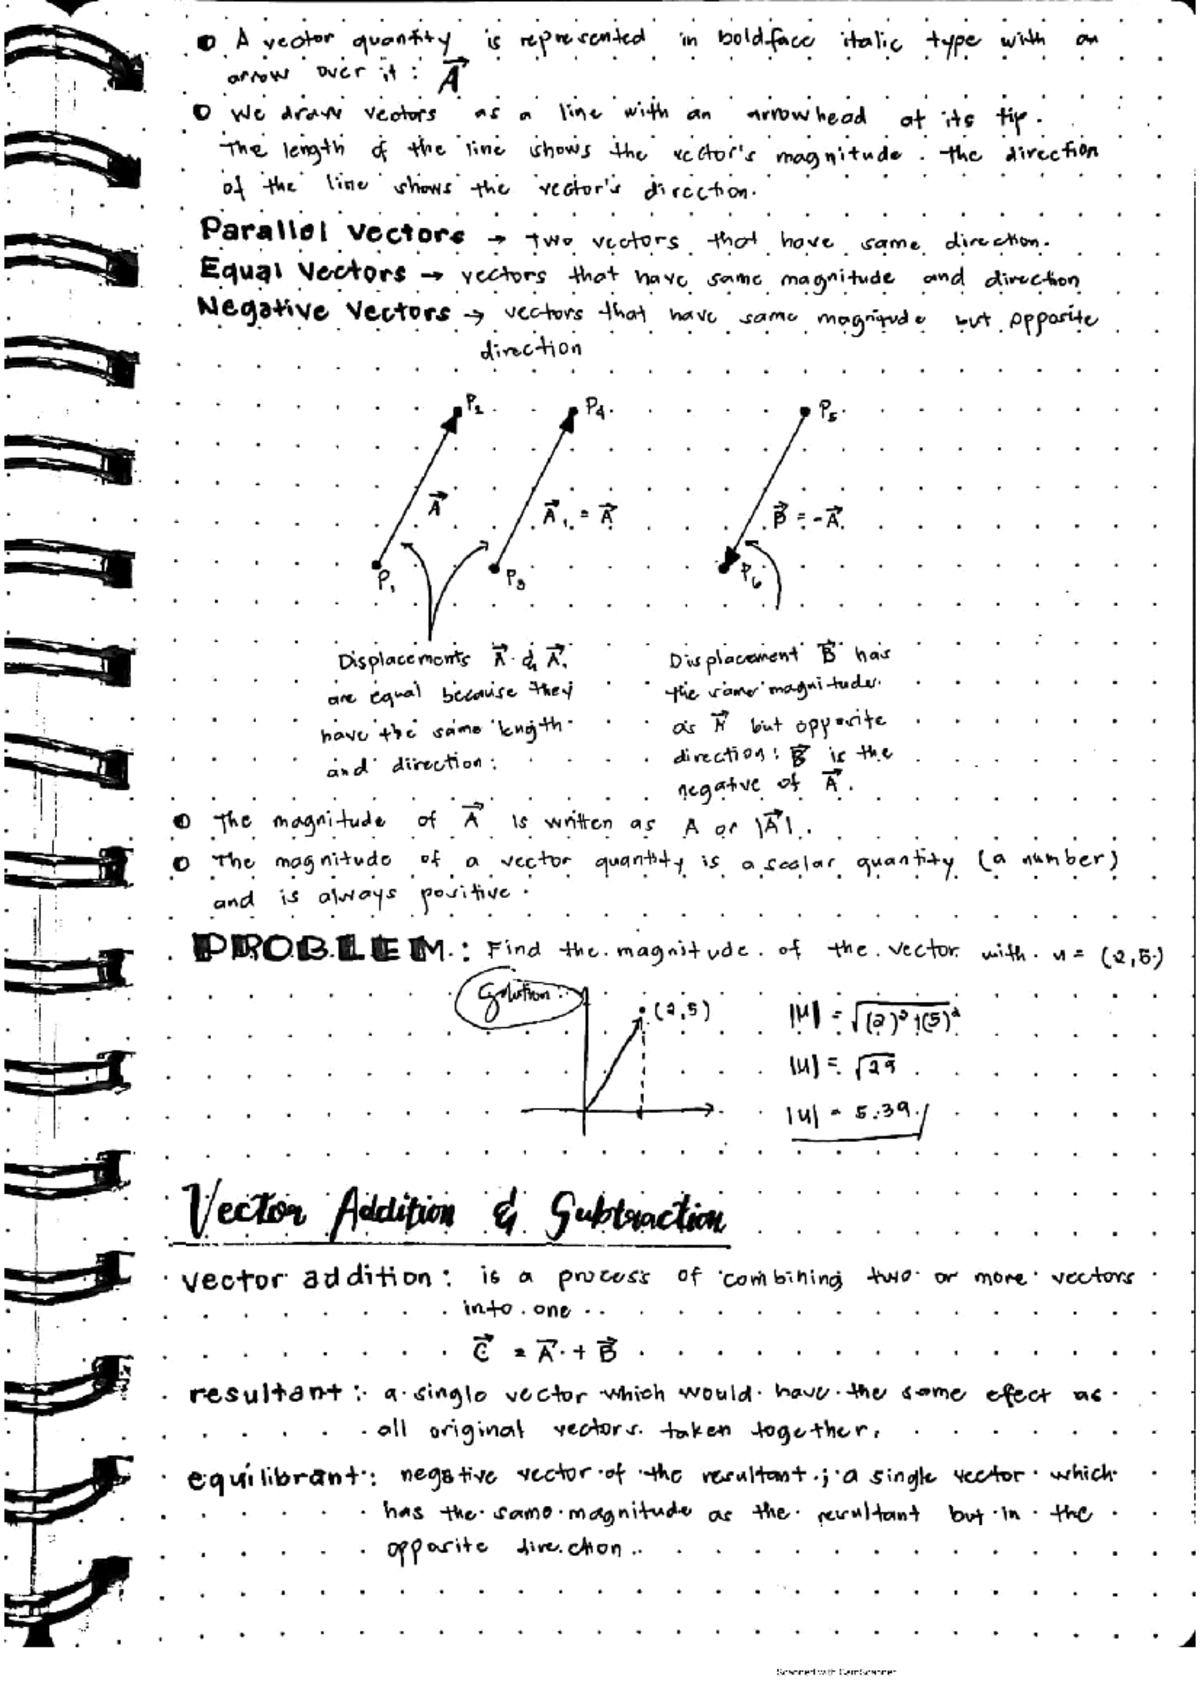 A vector quantity is represented in boldface italic type with an
arrow over it: A⃗
We draw vectors as a line with an arrowhead at its tip.
The length of the line shows the vector's magnitude. The direction
of the line shows the vector's direction.
Parallel Vectors → two vectors that have same direction.
Equal Vectors → vectors that have same magnitude and direction
Negative Vectors → vectors that have same magnitude but opposite
direction
P₂ P₄ P₅
A⃗ A⃗₁ = A⃗ B⃗ = -A⃗
P₁ P₃ P₆
Displacements A⃗ & A⃗₁
are equal because they
have the same length
and direction.
Displacement B⃗ has
the same magnitude
as A⃗ but opposite
direction; B⃗ is the
negative of A⃗.
The magnitude of A⃗ is written as A or |A⃗|.
The magnitude of a vector quantity is a scalar quantity (a number)
and is always positive.
PROBLEM: Find the magnitude of the vector with u = (2,5)
Solution:
(2,5)
|u| = √(2)² + (5)²
|u| = √29
|u| = 5.39
Vector Addition & Subtraction
vector addition: is a process of combining two or more vectors
into one
C⃗ = A⃗ + B⃗
resultant: a single vector which would have the same efect as
all original vectors taken together.
equilibrant: negative vector of the resultant; a single vector which
has the same magnitude as the resultant but in the
opposite direction.
Scanned with CamScanner